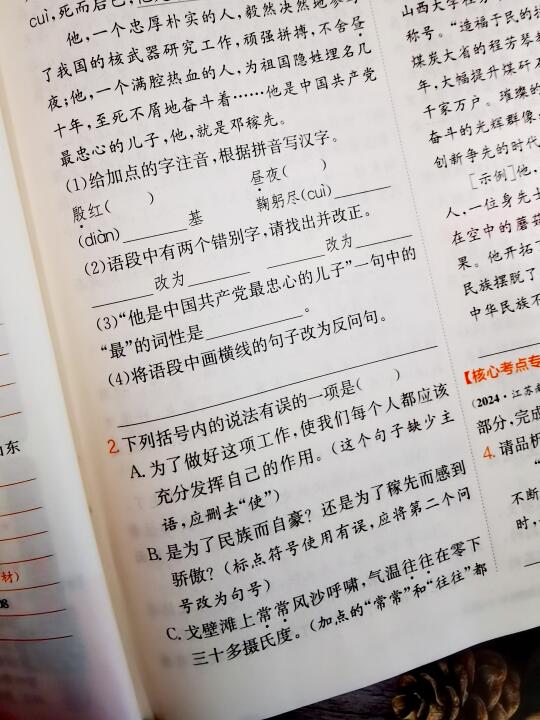 cuì,死而后已,
他,一个忠厚朴实的人,毅然决然地参
了我国的核武器研究工作,顽强拼搏,不舍昼
夜;他,一个满腔热血的人,为祖国隐姓埋名几
十年,至死不屑地奋斗着……他是中国共产党
最忠心的儿子,他,就是邓稼先。
(1)给加点的字注音,根据拼音写汉字。
殷红( ) 昼夜( )
(diàn)________基 鞠躬尽(cuì)________
(2)语段中有两个错别字,请找出并改正。
________改为________ ________改为________
(3)“他是中国共产党最忠心的儿子”一句中的
“最”的词性是____________。
(4)将语段中画横线的句子改为反问句。
2.下列括号内的说法有误的一项是( )
A.为了做好这项工作,使我们每个人都应该
充分发挥自己的作用。(这个句子缺少主
语,应删去“使”)
B.是为了民族而自豪?还是为了稼先而感到
骄傲?(标点符号使用有误,应将第二个问
号改为句号)
C.戈壁滩上常常风沙呼啸,气温往往在零下
三十多摄氏度。(加点的“常常”和“往往”都
山西大学
称号。“造福于民的
煤炭大省的程芳琴
年,大幅提升煤矸
千家万户。璀璨的
奋斗的光辉群像
创新争先的时代
[示例]他,
人,一位身先士
在空中的蘑菇
果。他开拓
民族摆脱了
中华民族不
【核心考点专
(2024·江苏
部分,完成
4.请品析
不断
时,
山东
材)